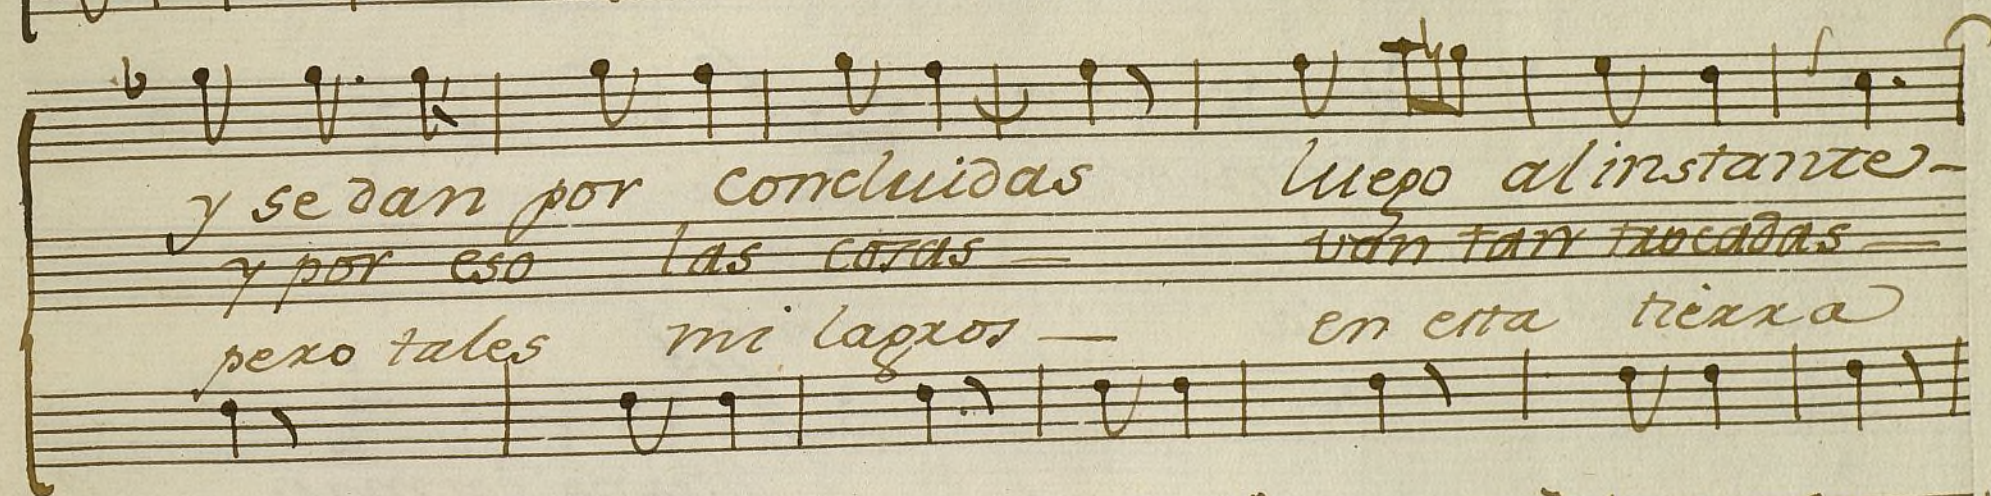 y se dan por concluidas luego al instante-
y por eso las cosas — van tan trocadas —
pero tales mi lagros — en esta tierra